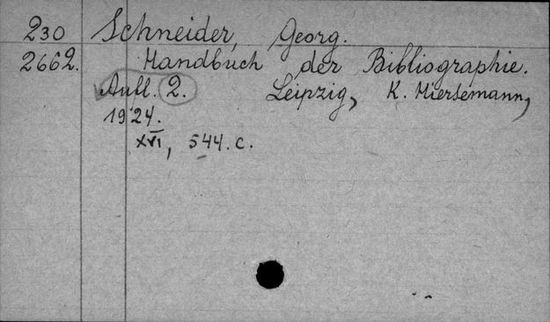 230 Schneider, Georg.
2662. Handbuch der Bibliographie.
Aufl. 2. Leipzig, K. Hiersemann,
1924.
XVI, 544. c.